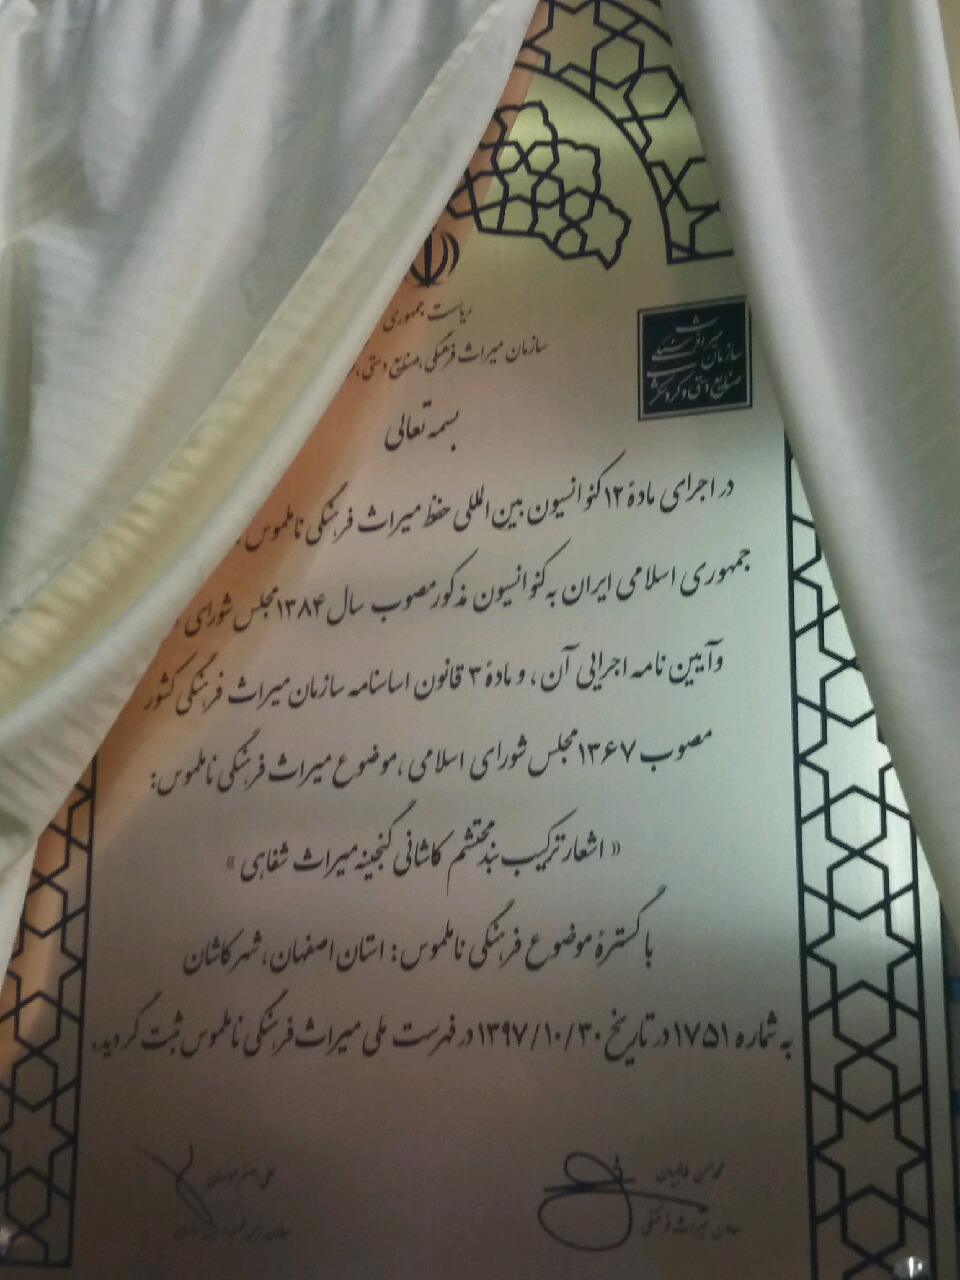 ریاست جمهوری
سازمان میراث فرهنگی، صنایع دستی،
سازمان میراث فرهنگی
صنایع دستی و گردشگری
بسمه تعالی
در اجرای مادهٔ ۱۲ کنوانسیون بین المللی حفظ میراث فرهنگی ناملموس
جمهوری اسلامی ایران به کنوانسیون مذکور مصوب سال ۱۳۸۴ مجلس شورای
وآیین نامه اجرایی آن، و مادهٔ ۳ قانون اساسنامه سازمان میراث فرهنگی کشور
مصوب ۱۳۶۷ مجلس شورای اسلامی، موضوع میراث فرهنگی ناملموس:
« اشعار ترکیب بند محتشم کاشانی گنجینه میراث شفاهی »
با گسترهٔ موضوع فرهنگی ناملموس: استان اصفهان، شهر کاشان
به شماره ۱۷۵۱ در تاریخ ۱۳۹۷/۱۰/۳۰ در فهرست ملی میراث فرهنگی ناملموس ثبت گردید.
محمدحسن طالبیان
معاون میراث فرهنگی